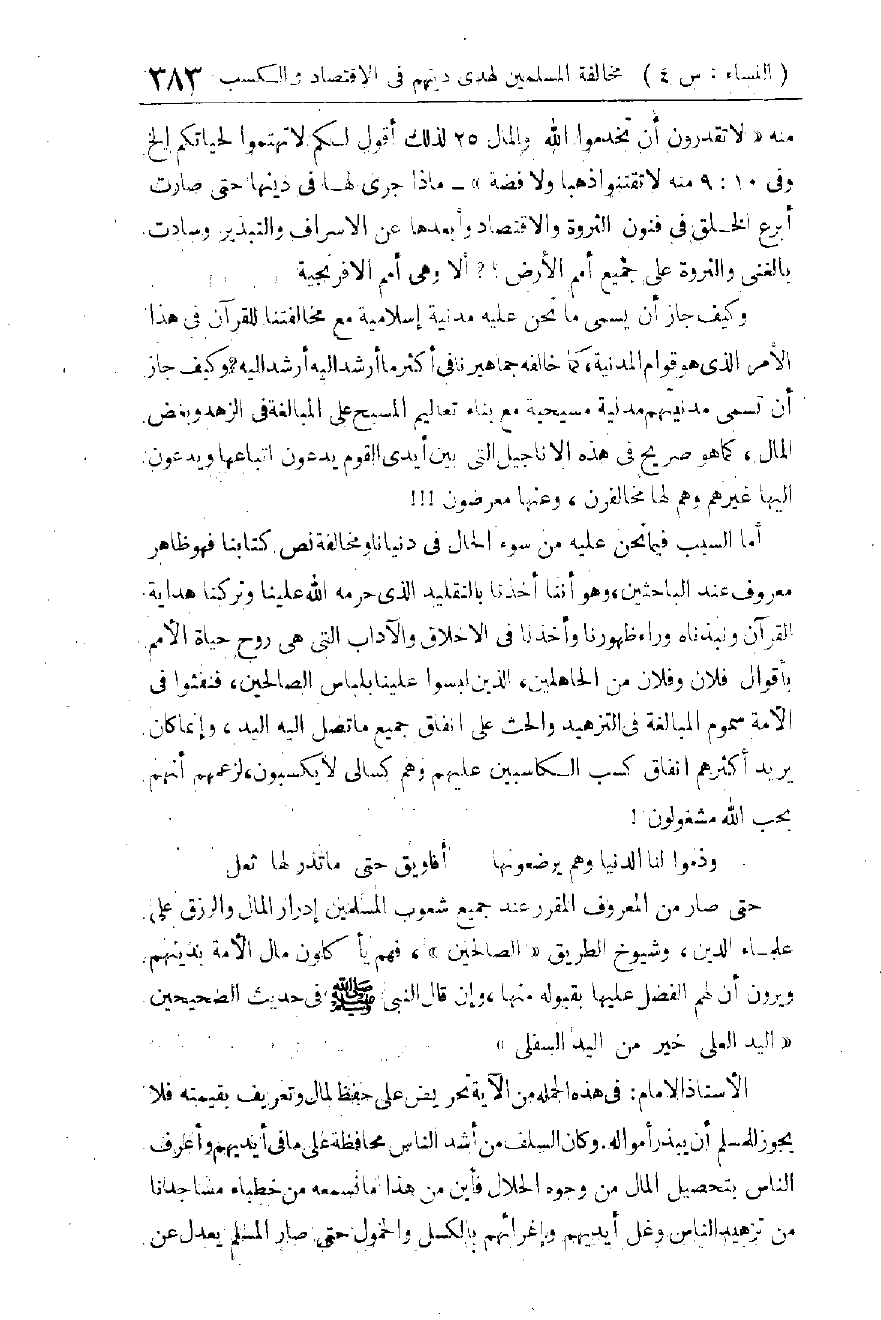 ( النساء : س ٤ ) مخالفة المسلمين لهدى دينهم فى الاقتصاد والكسب ٣٨٣
منه « لا تقدرون أن تخدموا الله والمال ٢٥ لذلك أقول لكم لا تهتموا لحياتكم إلخ
وفى ١٠ : ٩ منه لا تقتنوا ذهبا ولا فضة » ــ ماذا جرى لها فى دينها حتى صارت
أبرع الخلق فى فنون الثروة والاقتصاد وأبعدها عن الاسراف والتبذير وسادت
بالغنى والثروة على جميع أمم الأرض ؟! ألا وهى أمم الافرنجية
وكيف جاز أن يسمى ما نحن عليه مدنية إسلامية مع مخالفتنا للقرآن فى هذا
الأمر الذى هو قوام المدنية، كما خالفه جماهيرنا فى أكثر ما أرشد اليه أرشد اليه؟ وكيف جاز
أن تسمى مدنيتهم مدنية مسيحية مع بناء تعاليم المسيح على المبالغة فى الزهد وبغض
المال ، كما هو صريح فى هذه الاناجيل التى بين أيدى القوم يدعون اتباعها ويدعون
اليها غيرهم وهم لها مخالفون ، وعنها معرضون !!!
أما السبب فيما نحن عليه من سوء الحال فى دنيانا ومخالفة نص كتابنا فهو ظاهر
معروف عند الباحثين، وهو أننا أخذنا بالتقليد الذى حرمه الله علينا وتركنا هداية
القرآن ونبذناه وراء ظهورنا وأخذنا فى الاخلاق والآداب التى هى روح حياة الأمم
بأقوال فلان وفلان من الجاهلين، الذين لبسوا علينا بلباس الصالحين، فنفثوا فى
الأمة سموم المبالغة فى التزهيد والحث على انفاق جميع ما تصل اليه اليد ، وإنما كان
يريد أكثرهم انفاق كسب الكاسبين عليهم وهم كسالى لا يكسبون، لزعمهم أنهم
بحب الله مشغولون !
وذموا لنا الدنيا وهم يرضعونها أفاويق حتى ما تدر لها ثعل
حتى صار من المعروف المقرر عند جميع شعوب المسلمين إدرار المال والرزق على
علماء الدين ، وشيوخ الطريق « الصالحين » ، فهم يأكلون مال الأمة بدينهم
ويرون أن لهم الفضل عليها بقبوله منها ، وإن قال النبى ﷺ فى حديث الصحيحين
« اليد العلى خير من اليد السفلى »
الأستاذ الامام : فى هذه الجملة من الآية تحريض على حفظ المال وتعريف بقيمته فلا
يجوز للمسلم أن يبذر أمواله. وكان السلف من أشد الناس محافظة على ما فى أيديهم وأعرف
الناس بتحصيل المال من وجوه الحلال فأين من هذا ما نسمعه من خطباء مساجدنا
من تزهيد الناس وغل أيديهم وإغرائهم بالكسل والخمول حتى صار المسلم يعدل عن